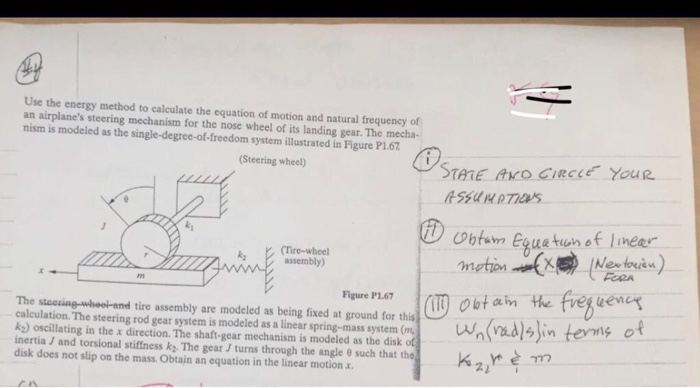 #4
Use the energy method to calculate the equation of motion and natural frequency of
an airplane's steering mechanism for the nose wheel of its landing gear. The mecha-
nism is modeled as the single-degree-of-freedom system illustrated in Figure P1.67.
(Steering wheel)
θ
J
k₁
r
k₂
(Tire-wheel
assembly)
x
m
Figure P1.67
The steering-wheel and tire assembly are modeled as being fixed at ground for this
calculation. The steering rod gear system is modeled as a linear spring-mass system (m,
k₂) oscillating in the x direction. The shaft-gear mechanism is modeled as the disk of
inertia J and torsional stiffness k₂. The gear J turns through the angle θ such that the
disk does not slip on the mass. Obtain an equation in the linear motion x.
(i) STATE AND CIRCLE YOUR
ASSUMPTIONS
(ii) Obtain Equation of linear
motion (x) (Newtonian)
FORM
(iii) Obtain the frequency
Wn(rad/s) in terms of
K₂, r & m